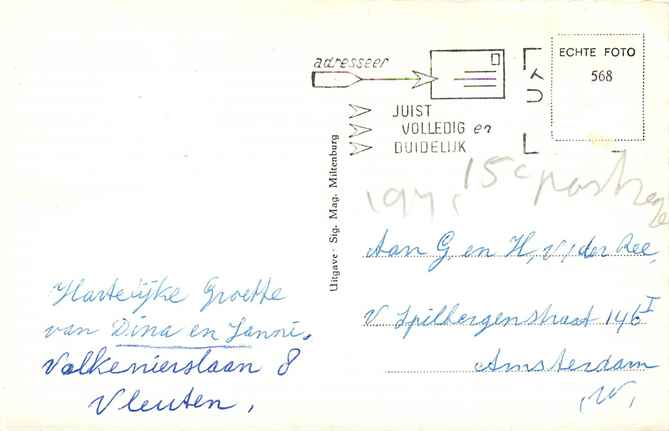 adresseer
JUIST
VOLLEDIG en
DUIDELIJK
ECHTE FOTO
568
Uitgave · Sig. Mag. Miltenburg
15c
Aan G. en H. v/der Ree,
v Spilbergenstraat 146 I
Amsterdam
(W).
Hartelijke Groette
van Dina en Janni.
Valkenierslaan 8
Vleuten.